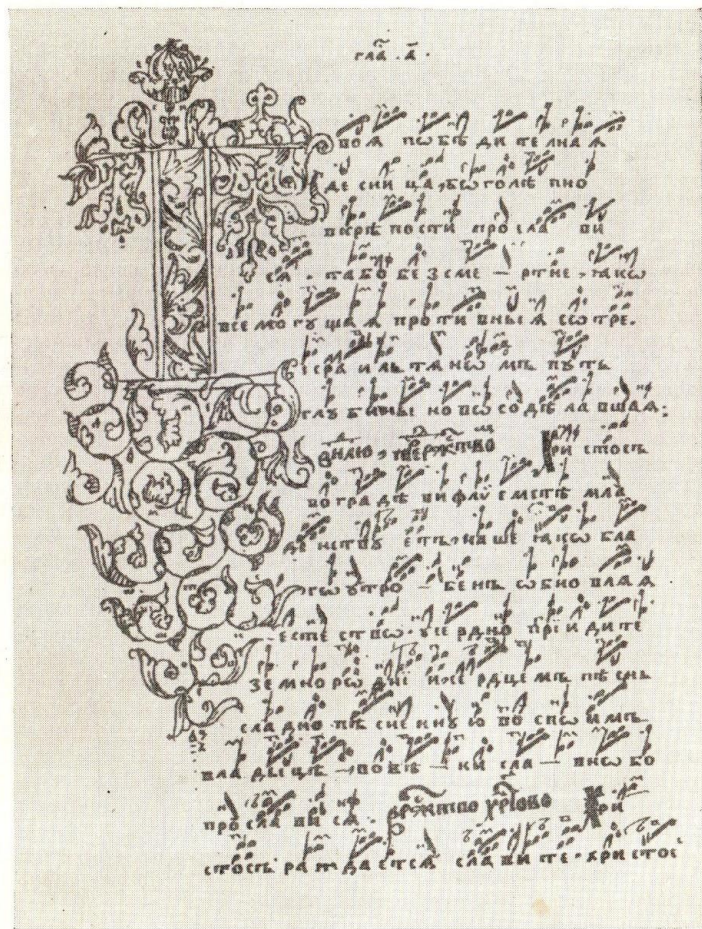 гла҃ . а҃ .
воѧ побѣ ди те лнаѧ
де сни ца , бѡголѣ пно
вкрѣ пости просла ви
сѧ . та бо бе зсме — ртне , ꙗкѡ
все мо гу щаѧ проти вныѧ сѡ тре .
ісра и льтѧнѡ мъ путь
глꙋ бины новосодѣ ла вшаѧ :
ристосъ
во гра дѣ вифлꙋ е мстѣ мла
де нствꙋ етъ , на ше ꙗкѡ бла
гоꙋтро — бенъ ѡбно влѧѧ
есте ствѡ . ꙋсе рдно прїи дите
земнорѡ дне и се рдцемъ пѣснь
сла дко пѣ сне ннꙋ ю во споимъ
вла ды цѣ — во вѣ — ки сла — внѡ бо
просла ви сѧ . ржтво хрⷭ҇тово Хри
стосъ раждаетсѧ сла ви те . христос